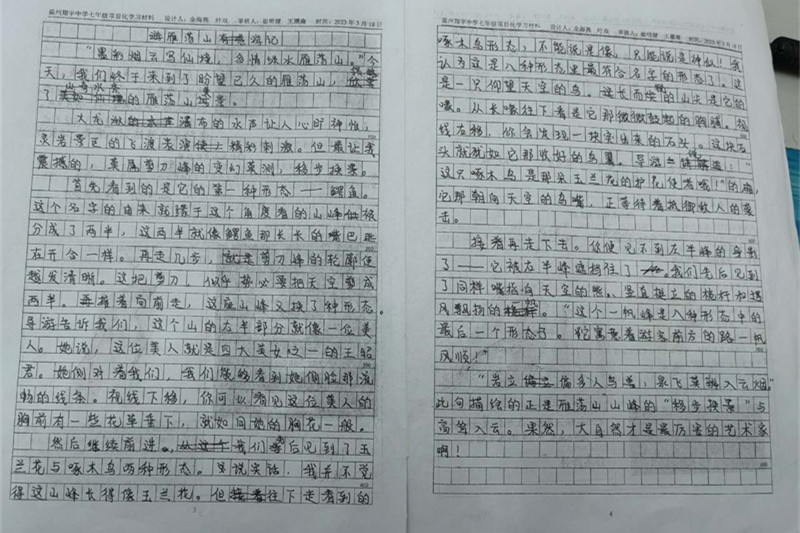 温州翔宇中学七年级项目化学习材料 设计人：金海燕 叶欢 审核人：崔明健 王灏南 时间：2023年3月18日
游雁荡山游记
天，我们终于来到了盼望已久的雁荡山，
的雁荡山
大龙瀑布的水声让人心旷神怡，
灵岩景区的飞渡表演精彩刺激。但最让我
震撼的，莫属剪刀峰的变幻莫测，移步换景。
首先看到的是它的第一种形态——鳄鱼。
这个名字的由来就搭于这个角度看的山峰似被
分成了两半，这两半就像鳄鱼那长长的嘴巴
在开合一样。再走几步，剪刀峰的轮廓便
越发清晰。这把剪刀，似乎势必要把天空剪成
两半。再接着向前走，这座山峰又换了种形态。
导游告诉我们，这个山的左半部分就像一位美
人。她说，这位美人就是四大美女之一的王昭
君。她侧对着我们，我们能够看到她侧脸那流
畅的线条。视线下移，你可以看见这位美人的
胸前有一些花草垂下，就如同她的胸花一般。
然后继续前进。我们先后见到了玉
兰花与啄木鸟两种形态。实说实话，我并不觉
得这山峰长得像玉兰花。但往下走看到的
3
温州翔宇中学七年级项目化学习材料 设计人：金海燕 叶欢 审核人：崔明健 王灏南 时间：2023年3月18日
啄木鸟形态，不能说是像，只能说是神似！我
认为这是八种形态里最符合名字的形态了。这
是一只仰望天空的鸟。延长而尖的山头是它的
喙。从长喙往下看是它那微微鼓起的胸脯。视
线右移，你会发现一块突出来的石头。这块石
头就犹如它那收好的鸟翼。导游：“
这只啄木鸟是那朵玉兰花的护花使者哦！”的确，
它那朝向天空的鸟嘴，正等待着抵御敌人的袭
击。
接着再走下去。你便见不到左半峰的身影
了——它被右半峰遮挡住了。我们先后见到
了同样嘴指向天空的熊、竖直挺立的桅杆和遇
风飘扬的。“这个一帆峰是八种形态中的
最后一个形态了。它寓意着游客前方的路一帆
风顺！”
“岩立偏多人鸟兽，泉飞英翱入云烟”
此句描绘的正是雁荡山山峰的“移步换景”与
高耸入云。果然，大自然才是最厉害的艺术家
啊！
4